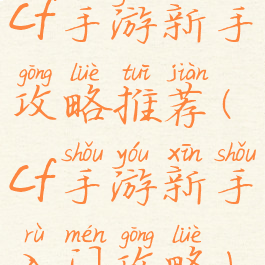 cf手游新手
gōng lüè tuī jiàn
攻略推荐(
shǒu yóu xīn shǒu
cf手游新手
rù mén gōng lüè
入门攻略)